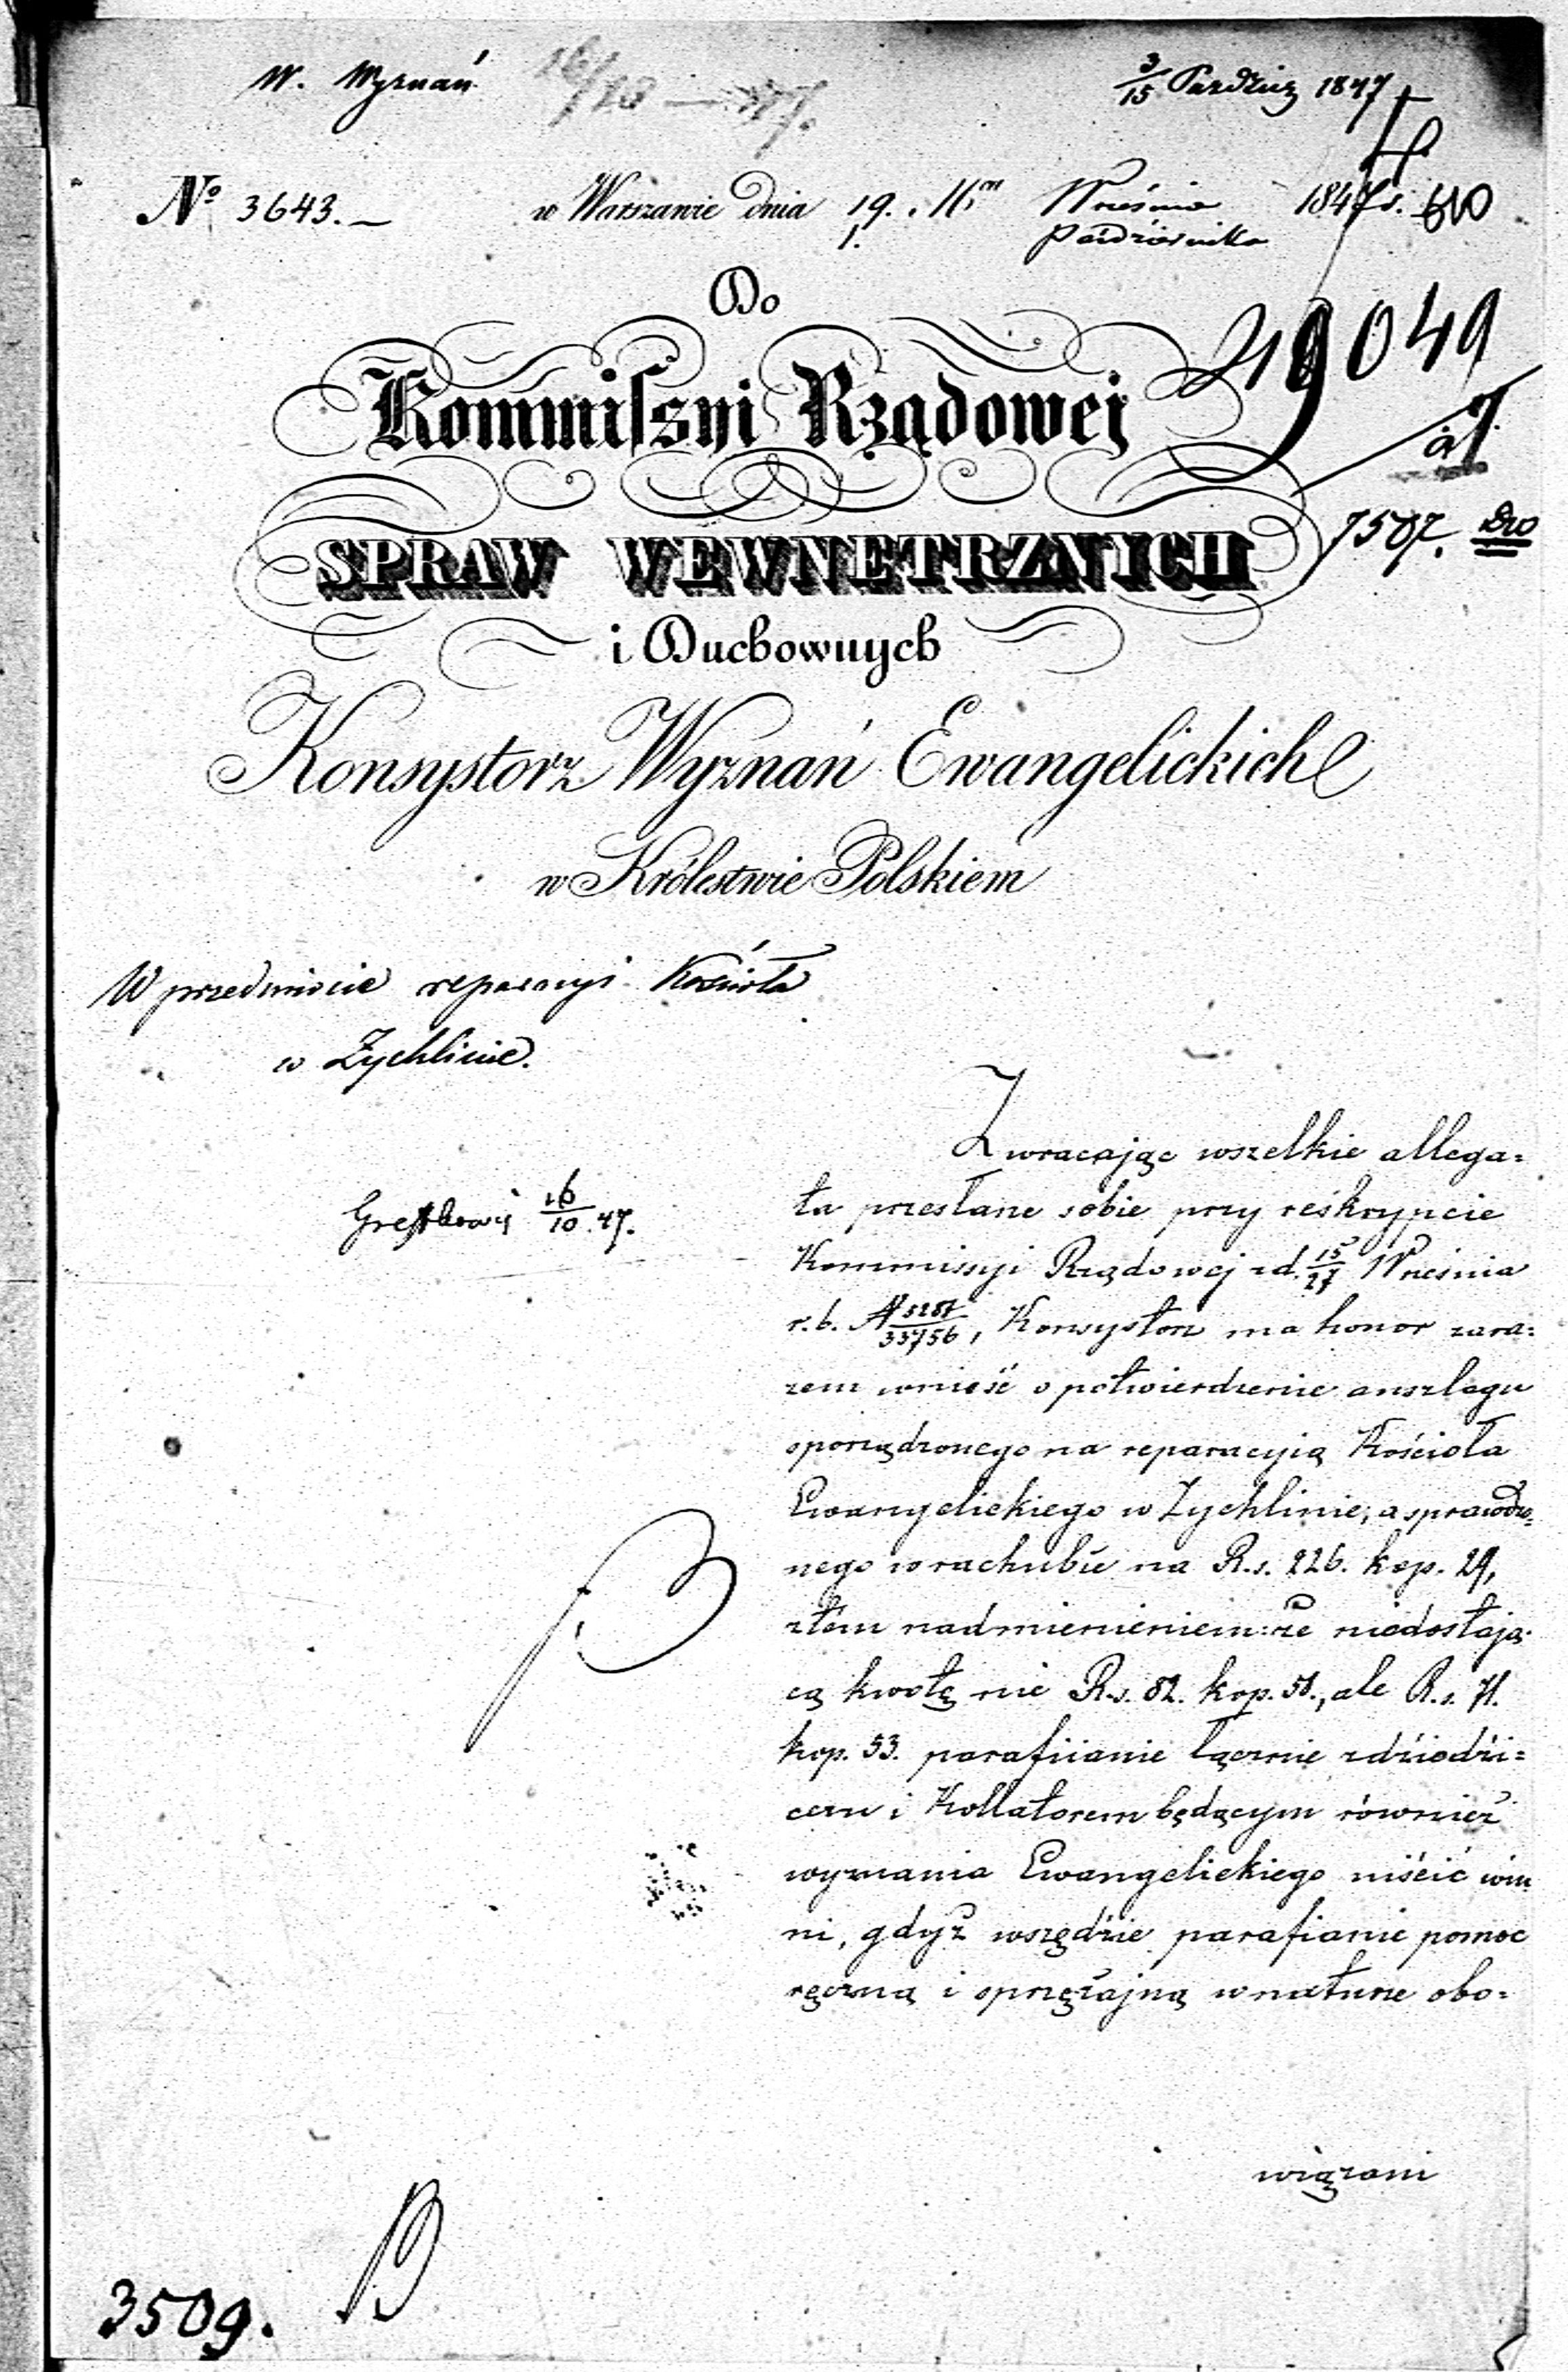 W. Wyznań 16/10 — 47. 3/15 Paździer 1847
№ 3643. — w Warszawie dnia 19. Września 1847 r.
1. Października
Do
Kommissyi Rządowej
29049
SPRAW WEWNETRZNYCH
7507.
i Duchownych
Konsystorz Wyznań Ewangelickich
w Królestwie Polskiem
W przedmiocie reparacyi Kościoła
w Żychlinie.
Zwracając wszelkie allega=
ta przesłane sobie przy reskrypcie
16/10 47.
Kommissyi Rządowej z d. 15/27 Września
r. b. № 5287/33756, Konsystorz ma honor zara=
zem wnieść o potwierdzenie anszlagu
sporządzonego na reparacyią Kościoła
Ewangelickiego w Żychlinie, a sprawdzo=
nego w rachubie na R.s. 226. kop. 29,
z tém nadmienieniem: że niedostają=
cą kwotę nie R.s. 82. kop. 58., ale R.s. 71.
kop. 53. parafiianie łącznie z dziedzi=
cem i Kollatorem będącym również
wyznania Ewangelickiego uiścić win
ni, gdyż wszędzie parafianie pomoc
ręczną i sprzężajną w naturze obo=
wiązani
3509.